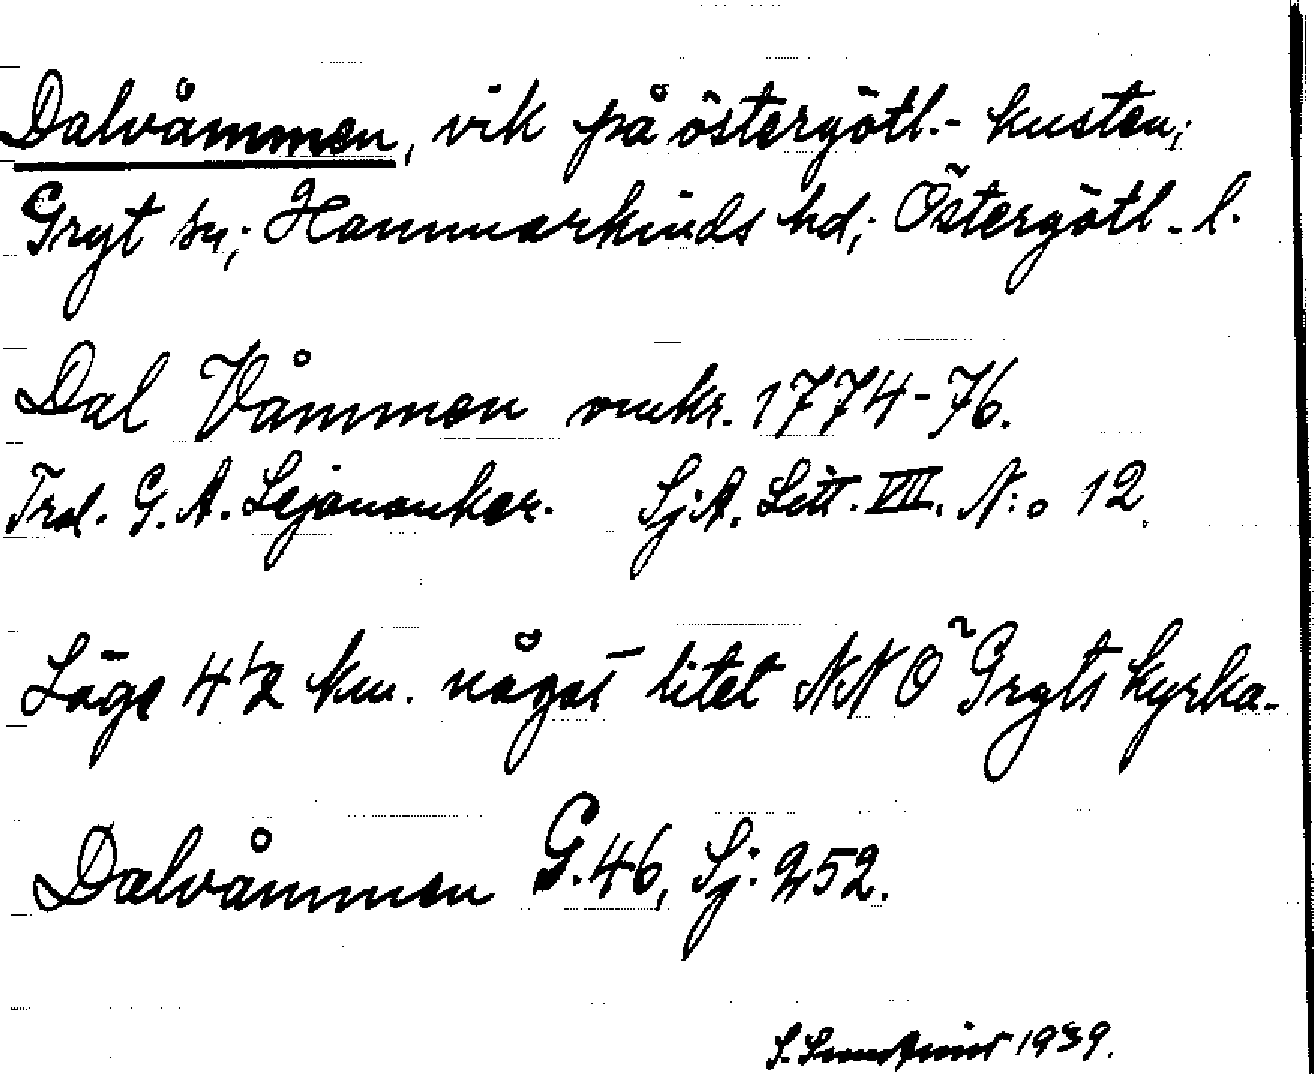 Dalvåmmen, vik på östergötl.- kusten;
Gryt sn; Hammarkinds hd; Östergötl. l.
Dal Våmmen omkr. 1774-76.
Trol. G. A. Lejonanker. Sj.A. Litt. VII. N:o 12.
Läge 4 1/2 km. något litet NNO Gryts kyrka.
Dalvåmmen G. 46, Sj: 252.
1939.